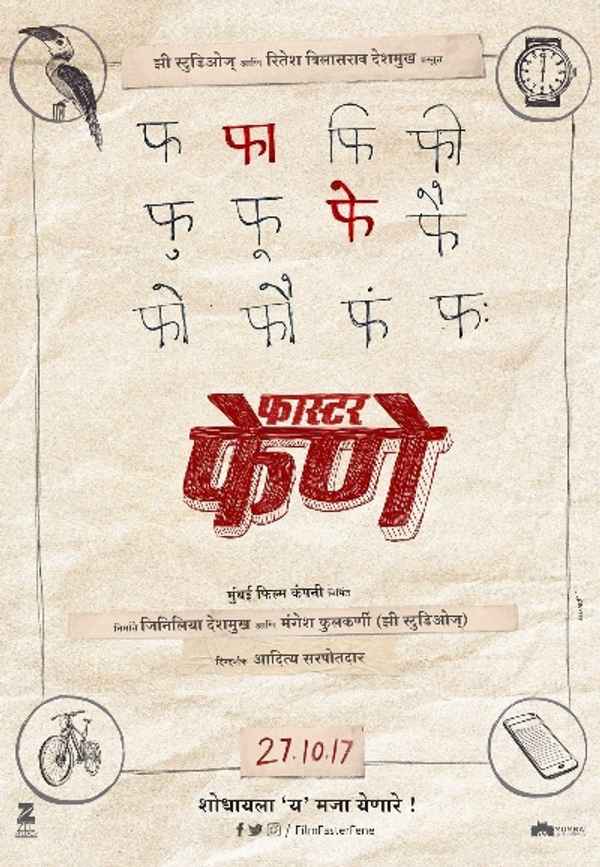 झी स्टुडिओज् आणि रितेश विलासराव देशमुख प्रस्तुत
फ फा फि फी
फु फू फे फै
फो फौ फं फः
फास्टर
फेणे
मुंबई फिल्म कंपनी निर्मित
निर्माते जिनिलिया देशमुख आणि मंगेश कुलकर्णी (झी स्टुडिओज्)
दिग्दर्शक आदित्य सरपोतदार
27.10.17
शोधायला ‘य’ मजा येणारे !
/ FilmFasterFene